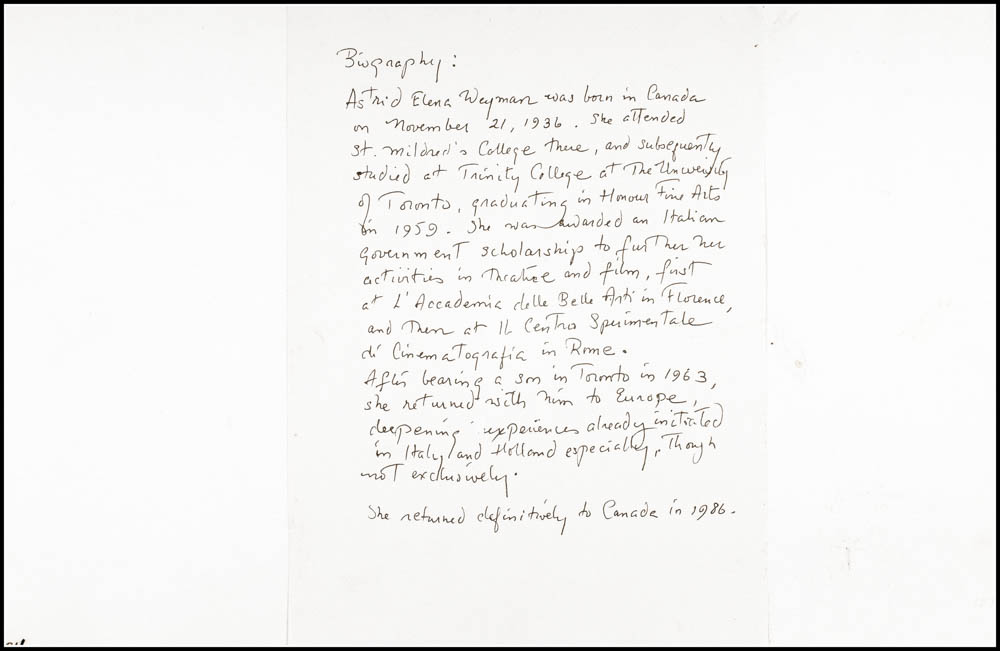 Biography:
Astrid Elena Weyman was born in Canada
on November 21, 1936. She attended
St. Mildred's College there, and subsequently
studied at Trinity College at The University
of Toronto, graduating in Honour Fine Arts
in 1959. She was awarded an Italian
Government scholarship to further her
activities in theatre and film, first
at L'Accademia delle Belle Arti in Florence,
and then at Il Centro Sperimentale
di Cinematografia in Rome.
After bearing a son in Toronto in 1963,
she returned with him to Europe,
deepening experiences already initiated
in Italy and Holland especially, though
not exclusively.
She returned definitively to Canada in 1986.